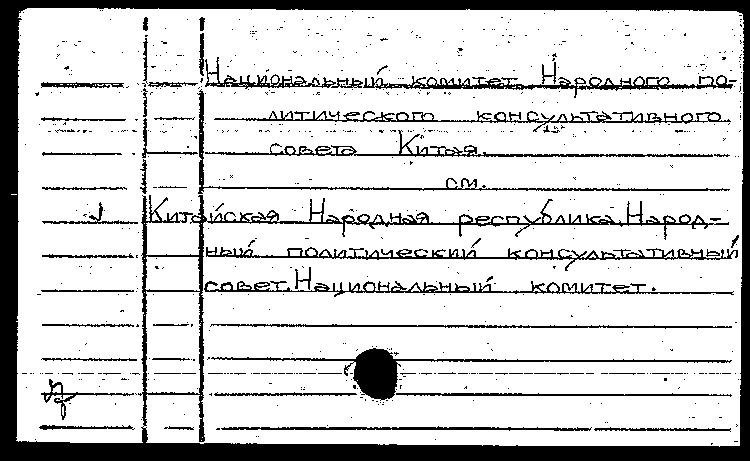 Национальный комитет Народного по-
литического консультативного
совета Китая.
см.
√ Китайская Народная республика. Народ-
ный политический консультативный
совет. Национальный комитет.